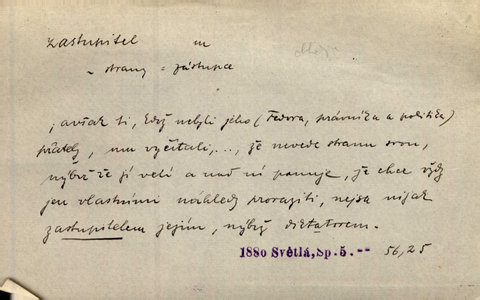 zastupitel m
~ strany = zástupce
; avšak ti, kdož nebyli jeho (Fedora, právníka a politika)
přátely, mu vyčítali,..., že nevede stranu svou,
nýbrž že jí velí a nad ní panuje, že chce vždy
jen vlastními náhledy proraziti, nejsa nijak
zastupitelem jejím, nýbrž diktatorem.
1880 Světlá, Sp. 5. -- 56,25